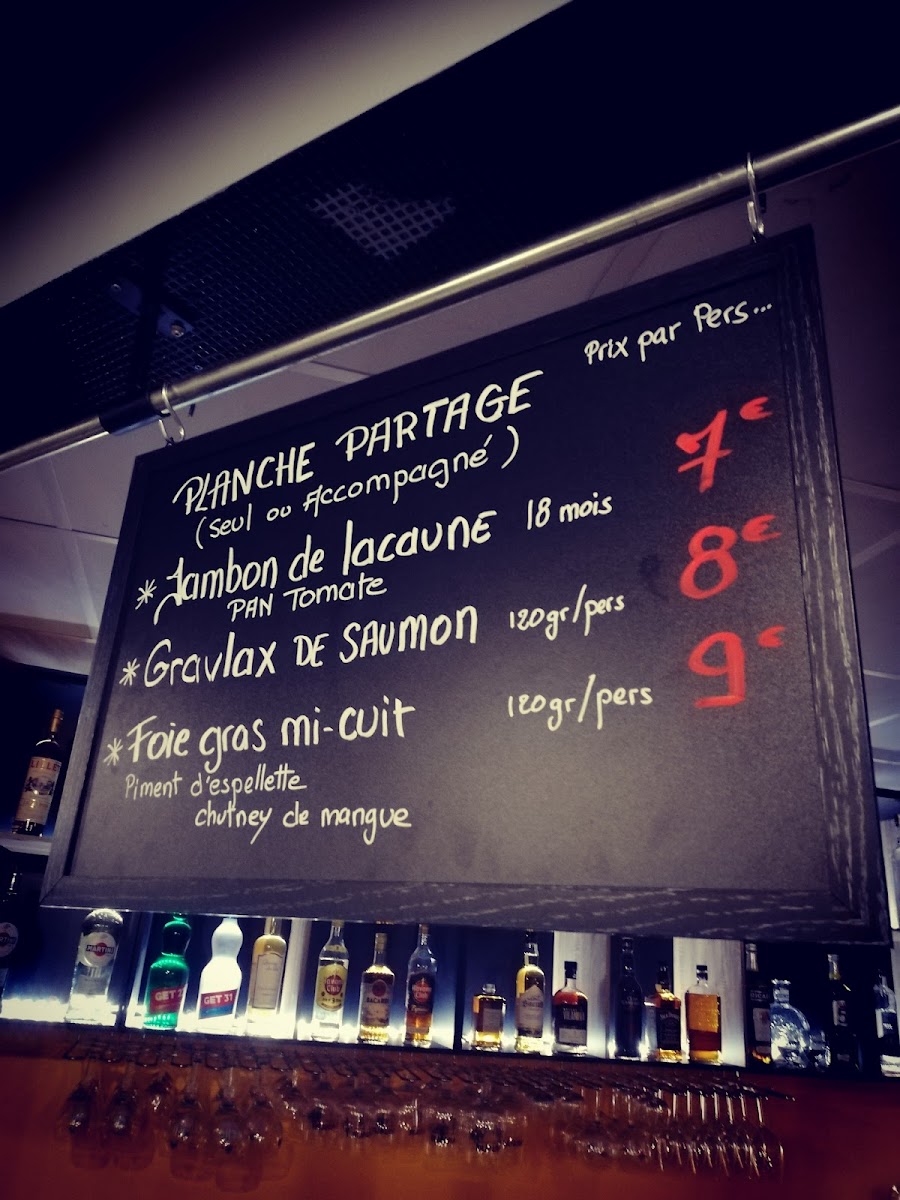 Prix par Pers...
PLANCHE PARTAGE
(seul ou Accompagné)
7€
* Jambon de lacaune 18 mois
PAN Tomate
8€
* Gravlax DE SAUMON 120gr/pers
9€
* Foie gras mi-cuit 120gr/pers
Piment d'espellette
chutney de mangue
MARTINI
GET 31
BACARDI